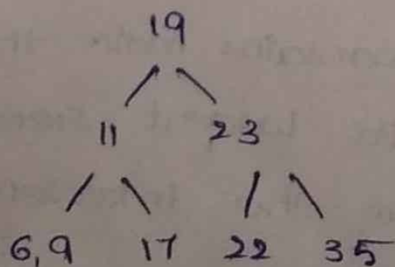 19
11 23
6,9 17 22 35